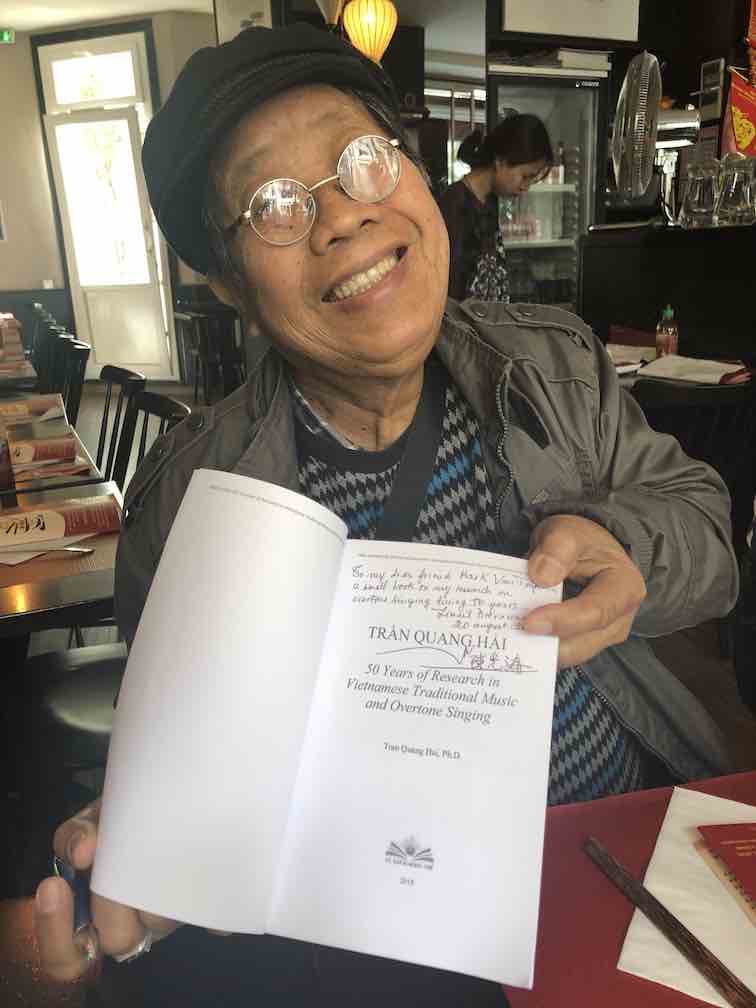 To my dear friend Mark Van
a small book to my research on
overtone singing during 50 years
20 august
TRẦN QUANG HẢI
陳光海
50 Years of Research in
Vietnamese Traditional Music
and Overtone Singing
Tran Quang Hai, Ph.D.
2018